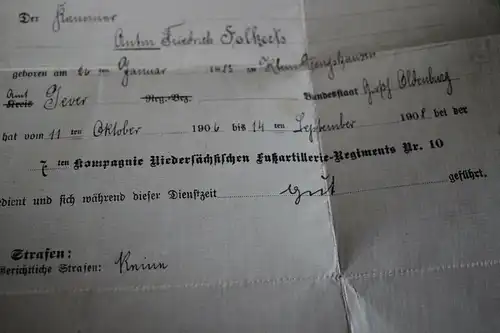 Der Kanonier
Anton Friedrich Folkers
geboren am 26 ten Januar 1885 in
Amt
Kreis Jever Reg.-Bez. Bundesstaat Oldenburg
hat vom 11 ten Oktober 1906 bis 14 ten September 1908 bei der
7 ten Kompagnie Niedersächsischen Fußartillerie-Regiments Nr. 10
dient und sich während dieser Dienstzeit gut geführt.
Strafen:
Gerichtliche Strafen: Keine